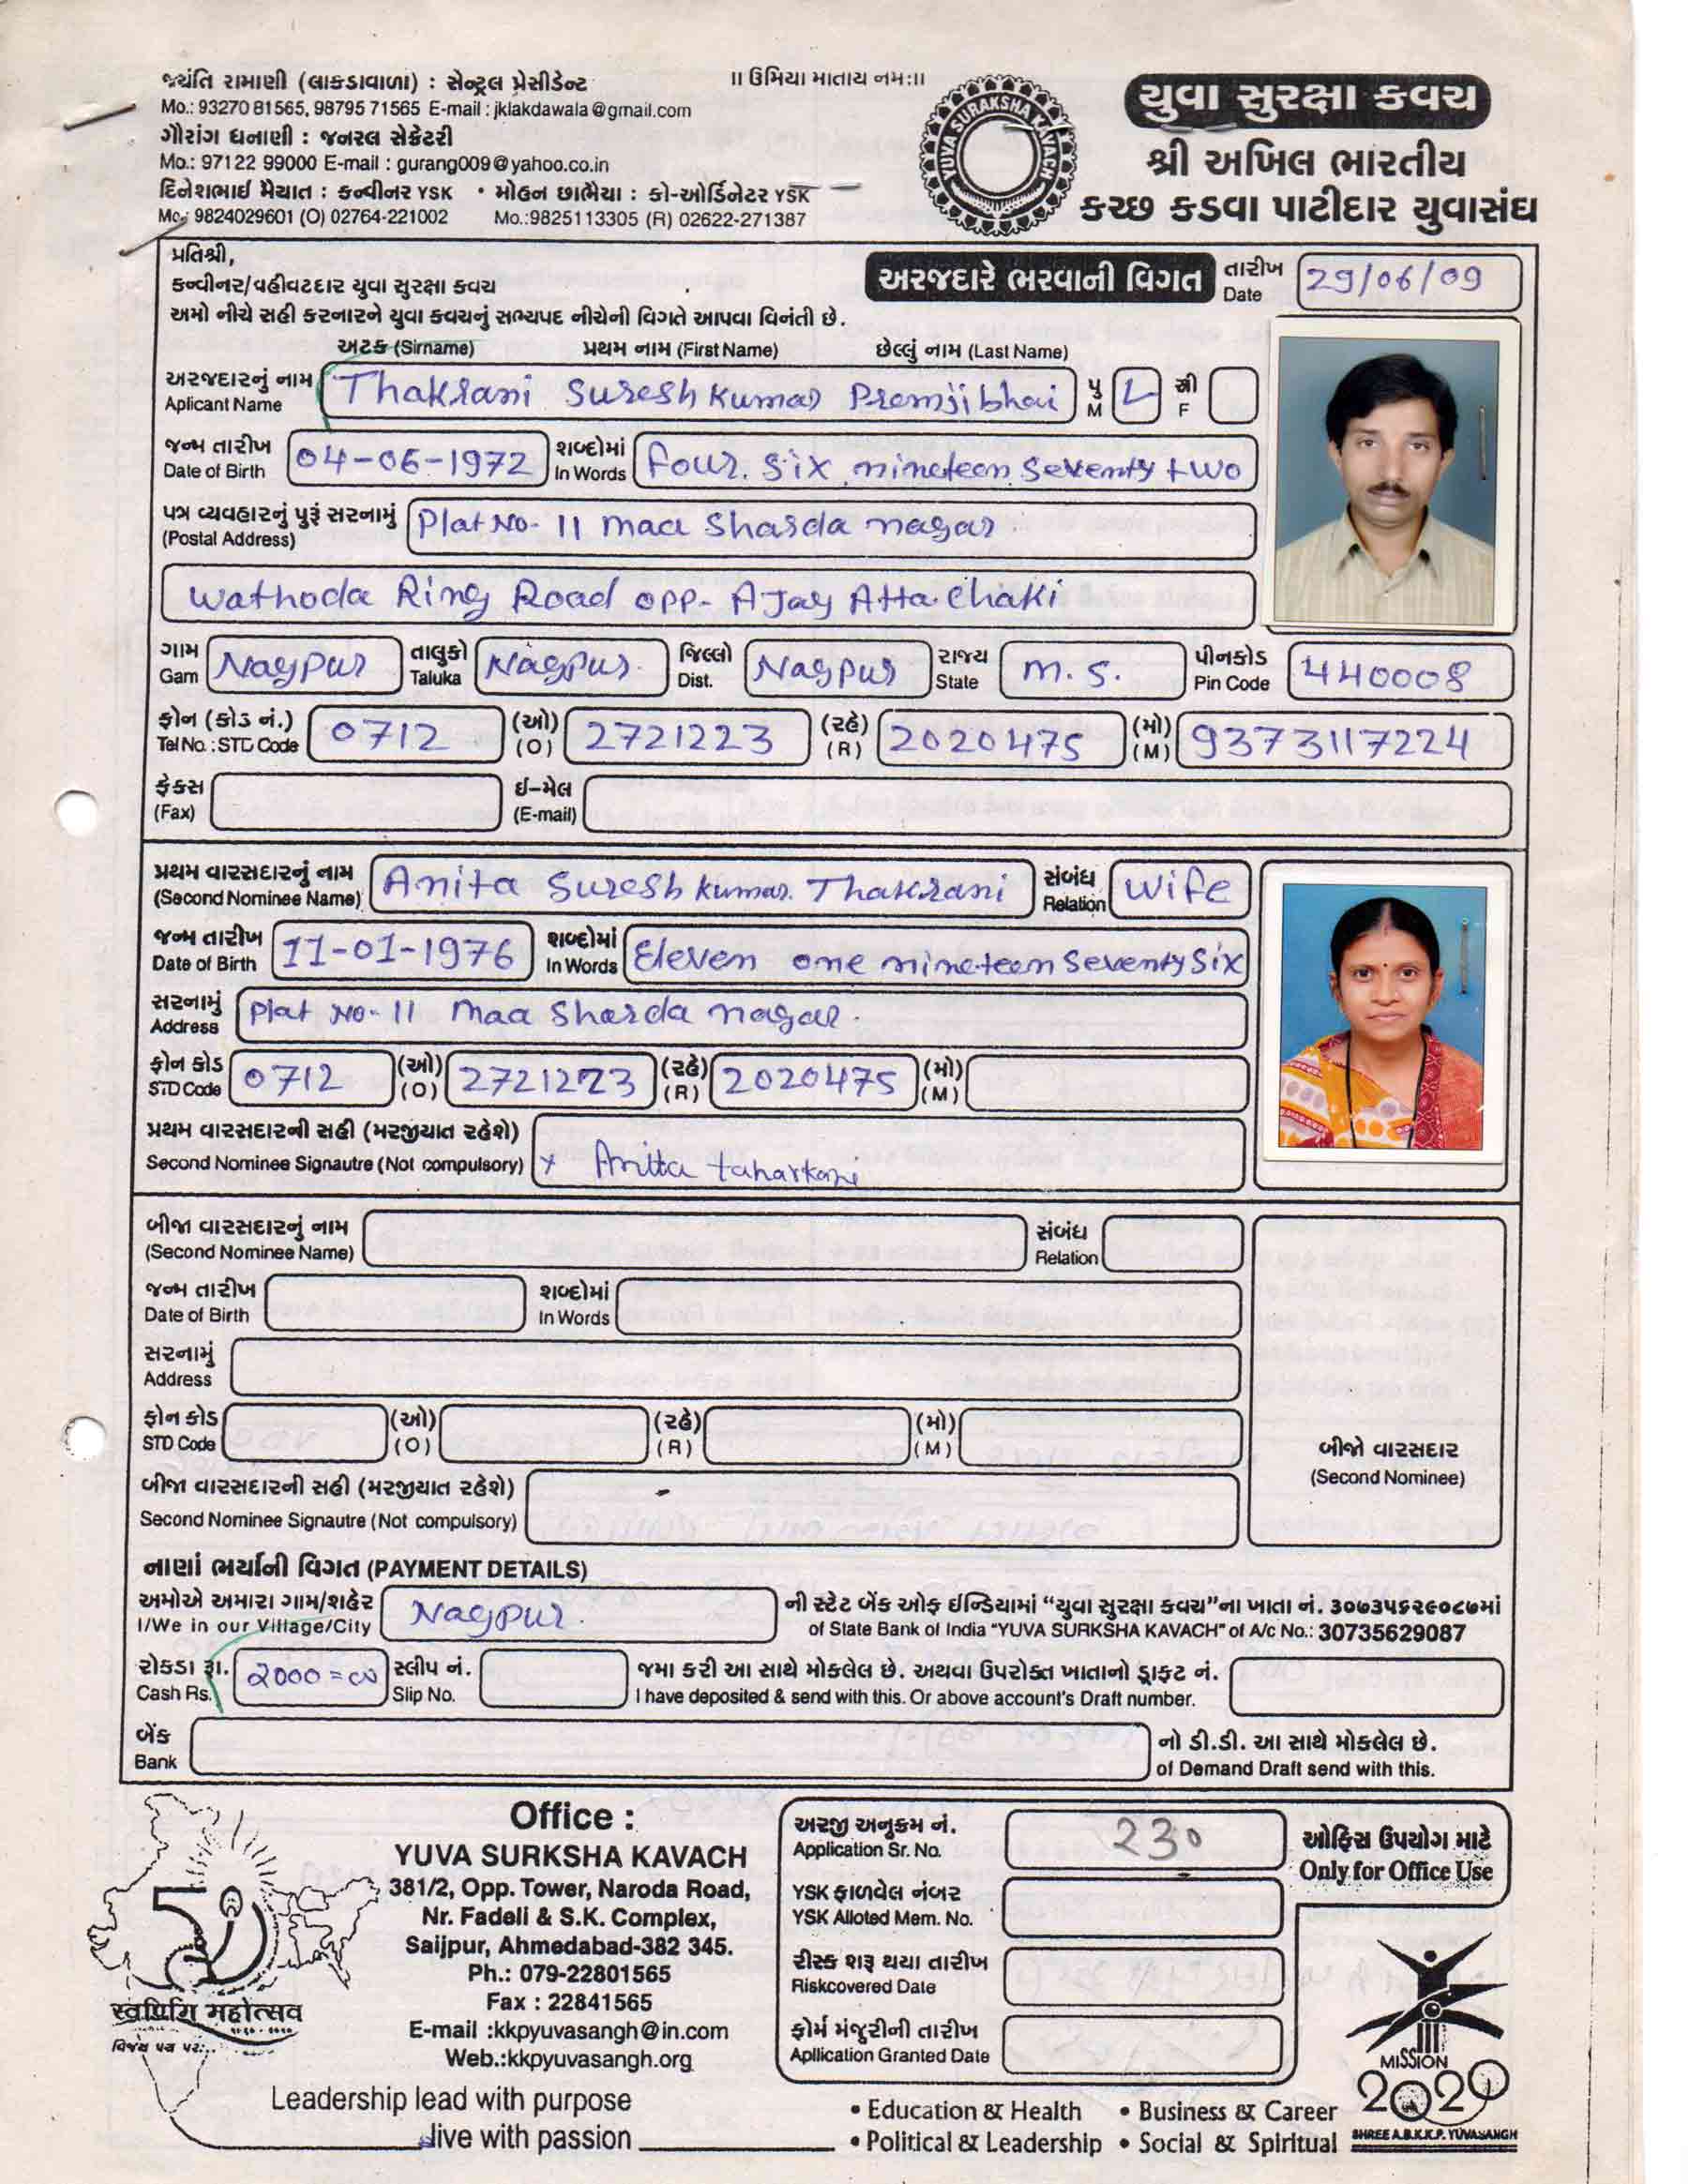 જયંતિ રામાણી (લાકડાવાળા) : સેન્ટ્રલ પ્રેસીડેન્ટ
Mo.: 93270 81565, 98795 71565 E-mail : jklakdawala@gmail.com
ગૌરાંગ ધનાણી : જનરલ સેક્રેટરી
Mo.: 97122 99000 E-mail : gurang009@yahoo.co.in
દિનેશભાઈ મૈયાત : કન્વીનર YSK • મોહન છાભૈયા : કો-ઓર્ડિનેટર YSK
Mo.: 9824029601 (O) 02764-221002 Mo.:9825113305 (R) 02622-271387
॥ ઉમિયા માતાય નમ:॥
YUVA SURAKSHA KAVACH
યુવા સુરક્ષા કવચ
શ્રી અખિલ ભારતીય
કચ્છ કડવા પાટીદાર યુવાસંઘ
પ્રતિશ્રી,
કન્વીનર/વહીવટદાર યુવા સુરક્ષા કવચ
અમો નીચે સહી કરનારને યુવા કવચનું સભ્યપદ નીચેની વિગતે આપવા વિનંતી છે.
અરજદારે ભરવાની વિગત
તારીખ Date 29/06/09
અટક (Sirname) પ્રથમ નામ (First Name) છેલ્લું નામ (Last Name)
અરજદારનું નામ Aplicant Name Thakrani Suresh Kumar Premjibhai પુ M સ્ત્રી F
જન્મ તારીખ Date of Birth 04-06-1972 શબ્દોમાં In Words four. six nineteen seventy two
પત્ર વ્યવહારનું પુરૂં સરનામું (Postal Address) Plat No- 11 maa Sharda nagar
Wathoda Ring Road opp- AJay Atta chaki
ગામ Gam Nagpur તાલુકો Taluka Nagpur જિલ્લો Dist. Nagpur રાજ્ય State M.S. પીનકોડ Pin Code 440008
ફોન (કોડ નં.) Tel No. : STD Code 0712 (ઓ) (O) 2721223 (રહે) (R) 2020475 (મો) (M) 9373117224
ફેક્સ (Fax) ઈ-મેલ (E-mail)
પ્રથમ વારસદારનું નામ (Second Nominee Name) Anita Suresh kumar. Thakrani સંબંધ Relation Wife
જન્મ તારીખ Date of Birth 11-01-1976 શબ્દોમાં In Words Eleven one nineteen seventy six
સરનામું Address Plat No- 11 Maa Sharda nagar.
ફોન કોડ STD Code 0712 (ઓ) (O) 2721223 (રહે) (R) 2020475 (મો) (M)
પ્રથમ વારસદારની સહી (મરજીયાત રહેશે)
Second Nominee Signautre (Not compulsory) x Anitta
બીજા વારસદારનું નામ (Second Nominee Name) સંબંધ Relation
જન્મ તારીખ Date of Birth શબ્દોમાં In Words
સરનામું Address
ફોન કોડ STD Code (ઓ) (O) (રહે) (R) (મો) (M)
બીજો વારસદાર
(Second Nominee)
બીજા વારસદારની સહી (મરજીયાત રહેશે)
Second Nominee Signautre (Not compulsory)
નાણાં ભર્યાની વિગત (PAYMENT DETAILS)
અમોએ અમારા ગામ/શહેર I/We in our Village/City Nagpur.
ની સ્ટેટ બેંક ઓફ ઈન્ડિયામાં “યુવા સુરક્ષા કવચ”ના ખાતા નં. ૩૦૭૩૫૬૨૯૦૮૭માં
of State Bank of India "YUVA SURKSHA KAVACH" of A/c No.: 30735629087
રોકડા રૂા. Cash Rs. 2000=00 સ્લીપ નં. Slip No.
જમા કરી આ સાથે મોકલેલ છે. અથવા ઉપરોક્ત ખાતાનો ડ્રાફ્ટ નં.
I have deposited & send with this. Or above account's Draft number.
બેંક Bank
નો ડી.ડી. આ સાથે મોકલેલ છે.
of Demand Draft send with this.
50
Office :
YUVA SURKSHA KAVACH
381/2, Opp. Tower, Naroda Road,
Nr. Fadeli & S.K. Complex,
Saijpur, Ahmedabad-382 345.
Ph.: 079-22801565
Fax : 22841565
E-mail :kkpyuvasangh@in.com
Web.:kkpyuvasangh.org
Leadership lead with purpose
live with passion
અરજી અનુક્રમ નં. Application Sr. No. 230
ઓફિસ ઉપયોગ માટે
Only for Office Use
YSK ફાળવેલ નંબર YSK Alloted Mem. No.
રીસ્ક શરૂ થયા તારીખ Riskcovered Date
ફોર્મ મંજુરીની તારીખ Apllication Granted Date
MISSION
2020
SHREE A.B.K.K.P. YUVASANGH
• Education & Health • Business & Career
• Political & Leadership • Social & Spiritual